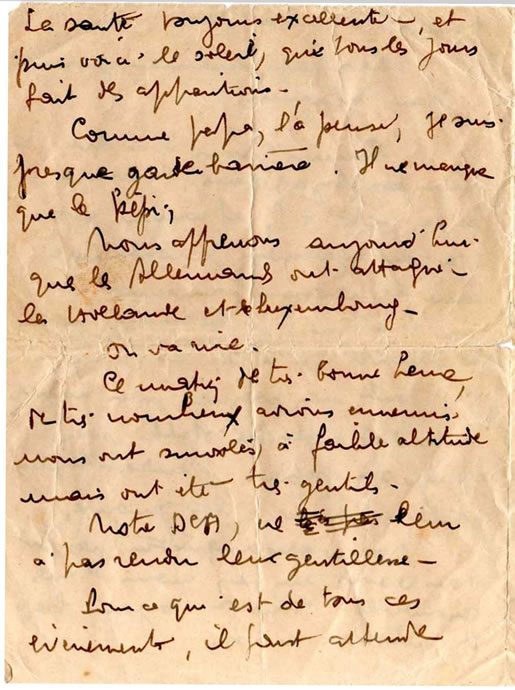 La santé toujours excellente, et
puis voici le soleil, qui tous les jours
fait des apparitions -
Comme papa, l'a pensé, je suis
presque garde barrière. Il ne manque
que le képi,
Nous apprenons aujourd'hui
que les Allemands ont attaqué
la Hollande et le Luxembourg -
on va rire.
Ce matin de très bonne heure,
de très nombreux avions ennemis
nous ont survolés, à faible altitude
mais ont été très gentils -
Notre DCA, ne leur
a pas rendu leur gentillesse -
Pour ce qui est de tous ces
évènements, il faut attendre